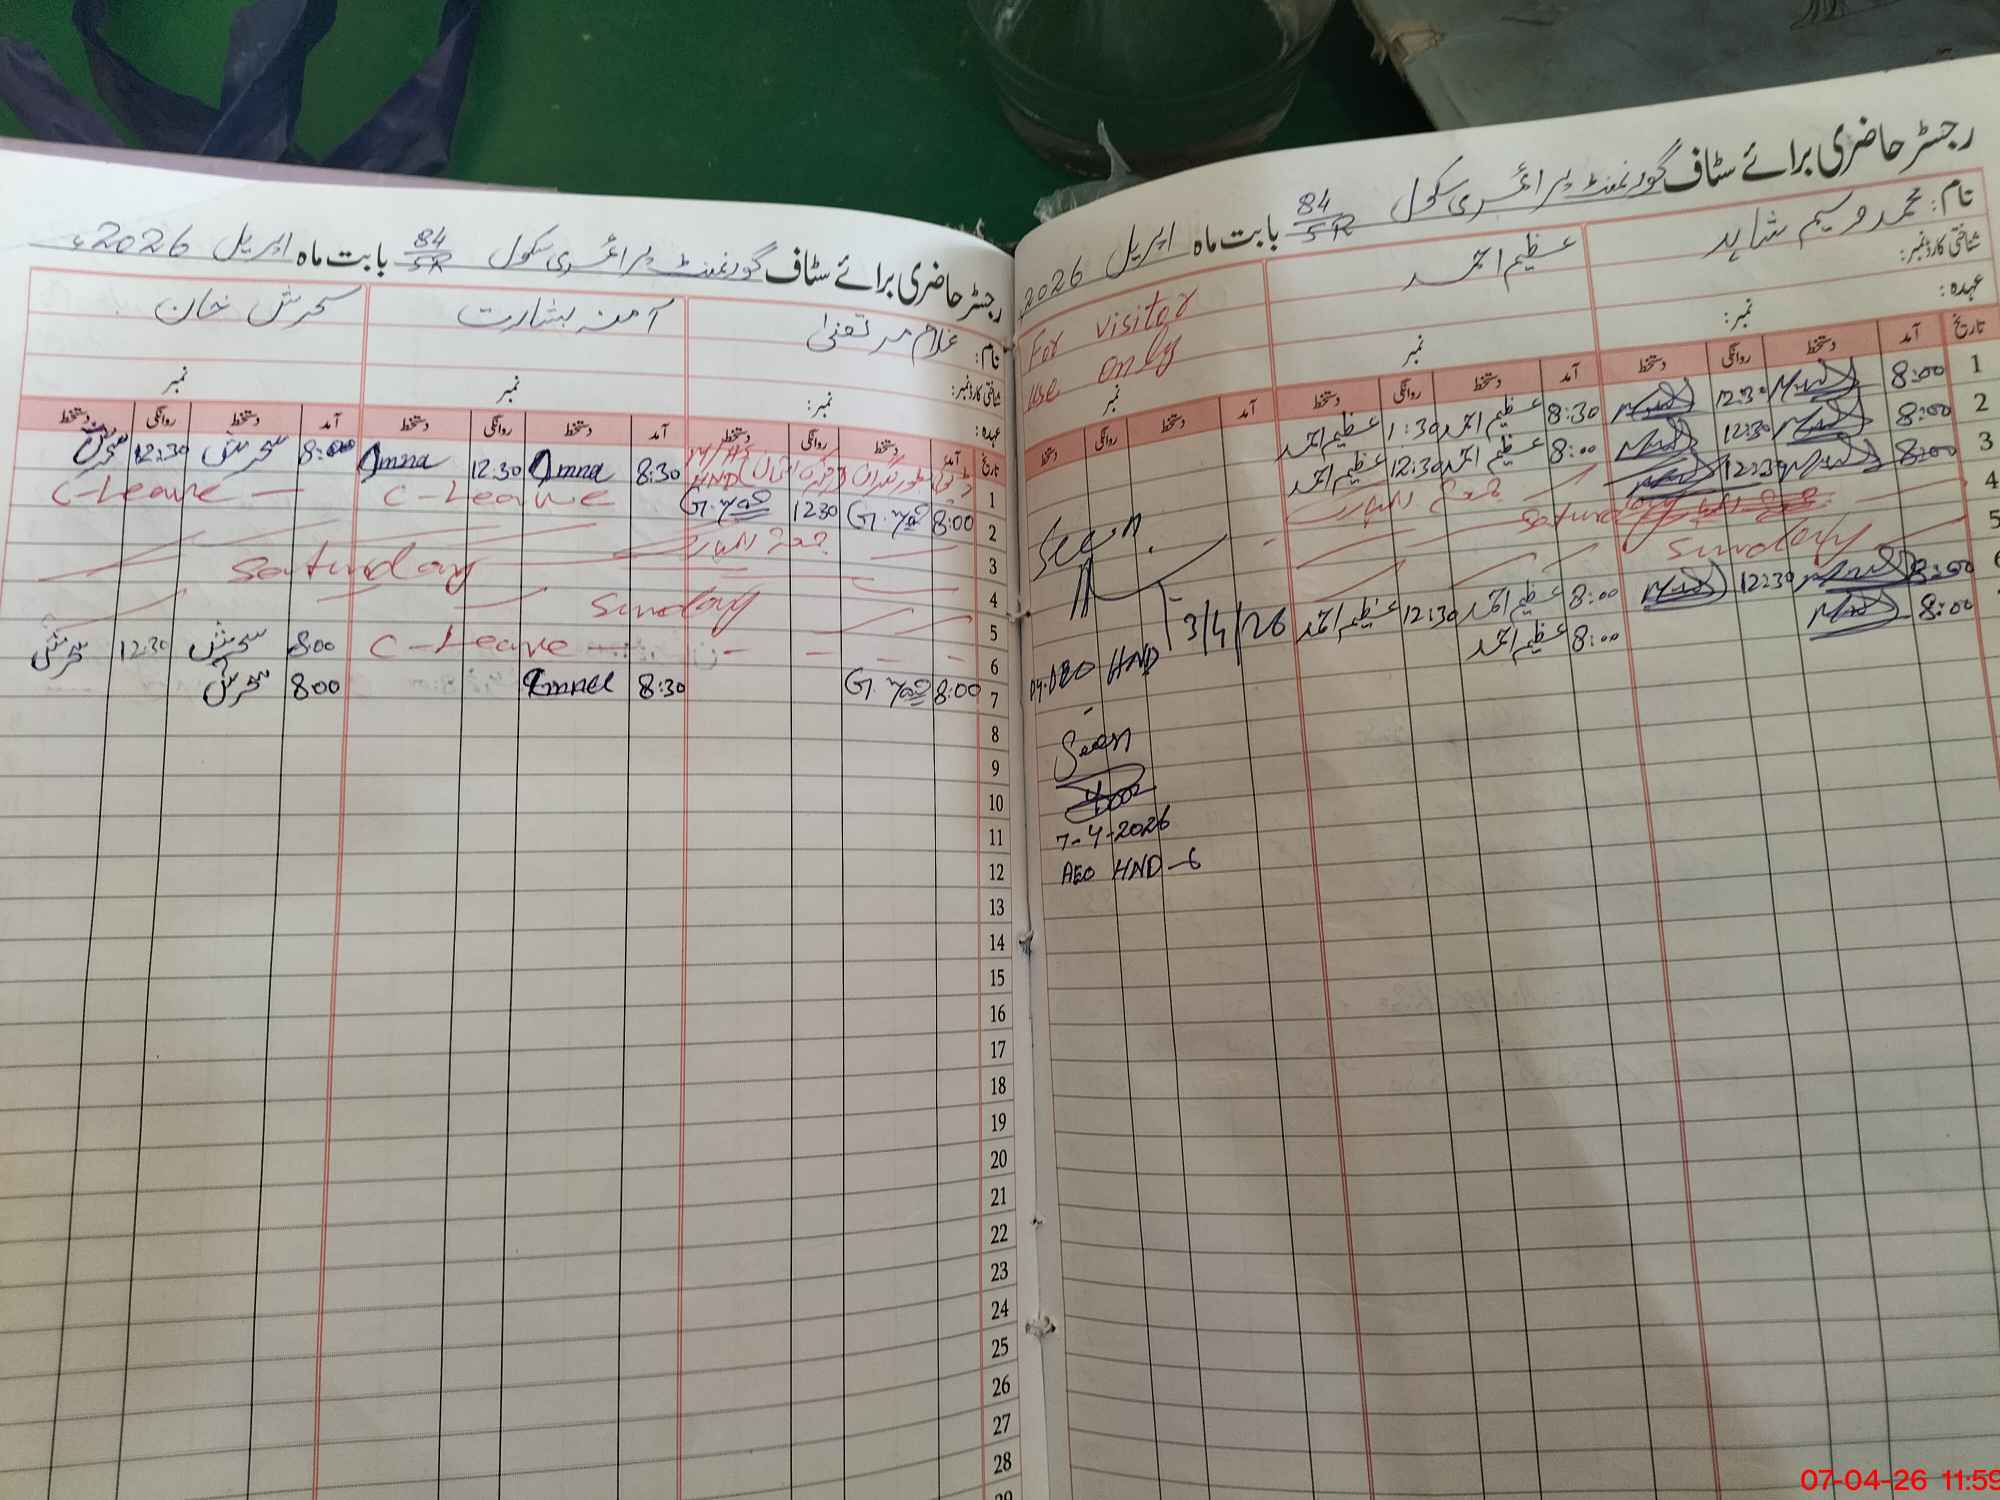 رجسٹر حاضری برائے سٹاف گورنمنٹ پرائمری سکول 84/5R بابت ماہ اپریل 2026
نام: محمد وسیم شاہد
عظیم احمد
For visitor use only
شناختی کارڈ نمبر:
عہدہ:
نمبر:
نمبر
نمبر
تاریخ آمد دستخط روانگی دستخط آمد دستخط روانگی دستخط آمد دستخط روانگی دستخط
1 8:00 12:30 8:30 عظیم احمد 1:30 عظیم احمد
2 8:00 12:30 8:00 عظیم احمد 12:30 عظیم احمد
3 8:00 12:30
4 Saturday
5 Sunday
8:00 12:30 8:00 عظیم احمد 12:30 عظیم احمد
8:00 8:00 عظیم احمد
Seen.
3/4/26
Dy.DEO HND
Seen
7-4-2026
AEO HND-6
رجسٹر حاضری برائے سٹاف گورنمنٹ پرائمری سکول 84/5R بابت ماہ اپریل 2026ء
نام: غلام مرتضیٰ
آمنہ بشارت
سحرش خان
شناختی کارڈ نمبر:
عہدہ:
نمبر:
نمبر
نمبر
تاریخ آمد دستخط روانگی دستخط آمد دستخط روانگی دستخط آمد دستخط روانگی دستخط
1 HND 8:30 Amna 12:30 Amna 8:00 سحرش 12:30 سحرش
2 8:00 1230 C-Leave C-Leave
3
4 Saturday
5 Sunday
6 C-Leave 8:00 سحرش 12:30 سحرش
7 8:00 8:30 Amna 800 سحرش
8
9
10
11
12
13
14
15
16
17
18
19
20
21
22
23
24
25
26
27
28
07-04-26 11:59